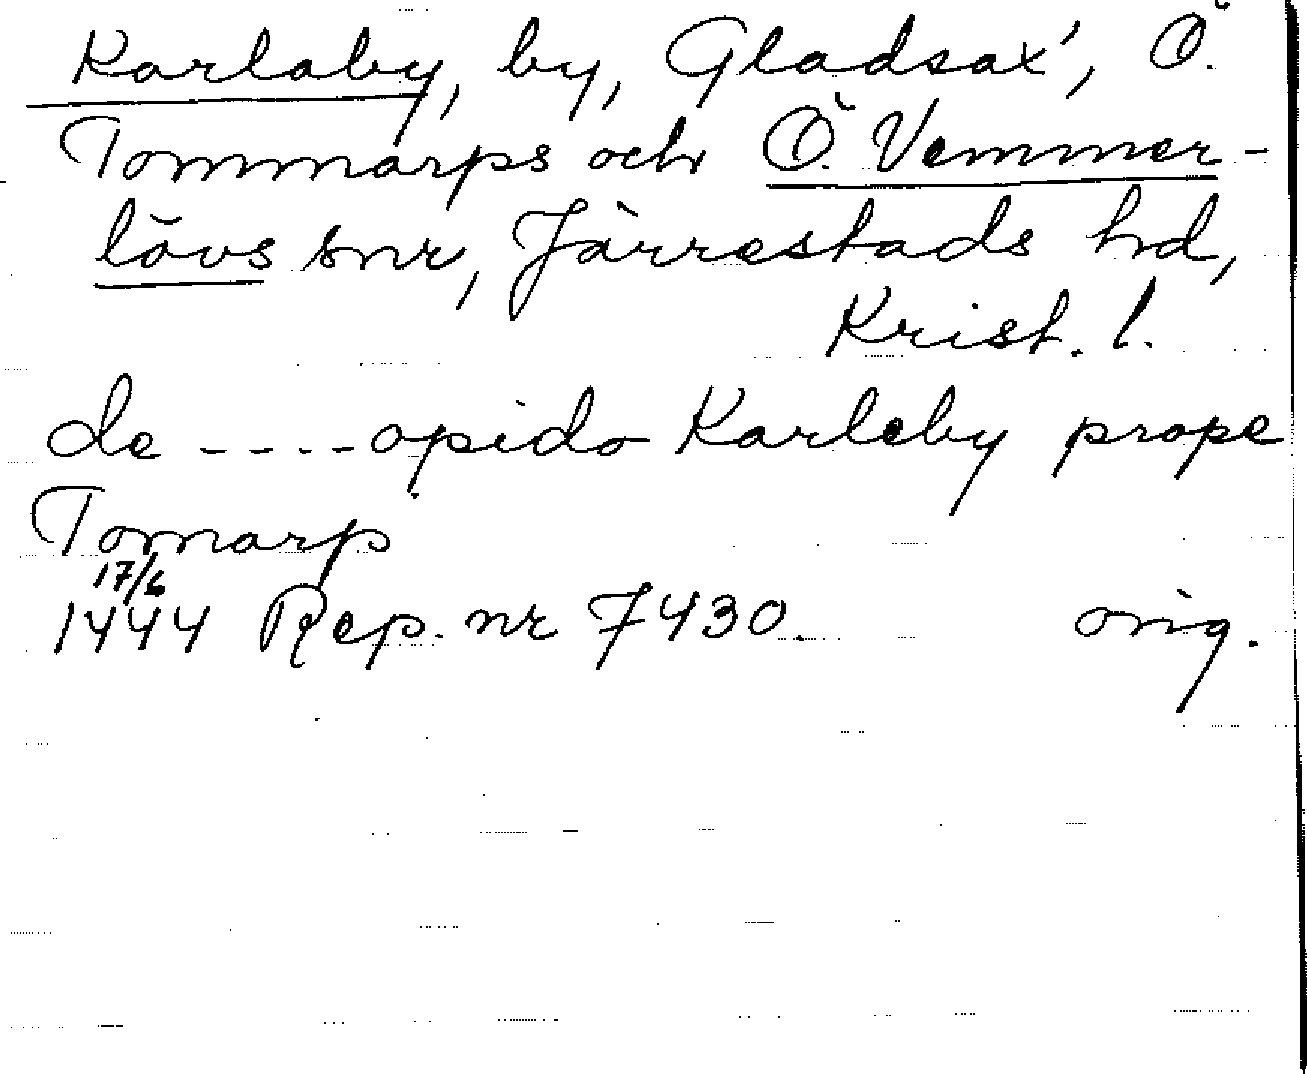 Karlaby, by, Gladsax', Ö.
Tommarps och Ö. Vemmer-
lövs snr, Järrestads hd,
Krist. l.
de ----opido Karleby prope
Tomarp
17/6
1444 Rep. nr 7430. orig.